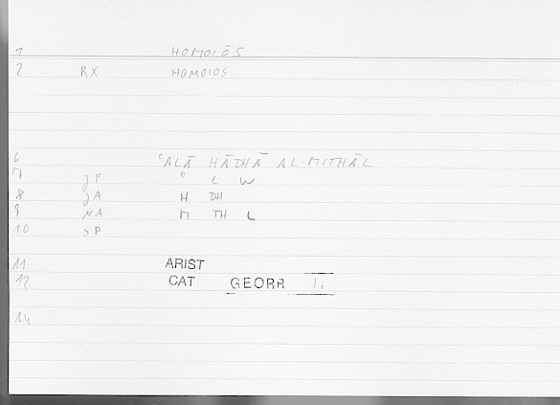 1 HOMOIŌS
2 RX HOMOIOS
6 ʿALĀ HĀDHĀ AL-MITHĀL
7 jP ʿ L W
8 jA H DH
9 NA M TH L
10 sP
11 ARIST
12 CAT GEORR 1,
14